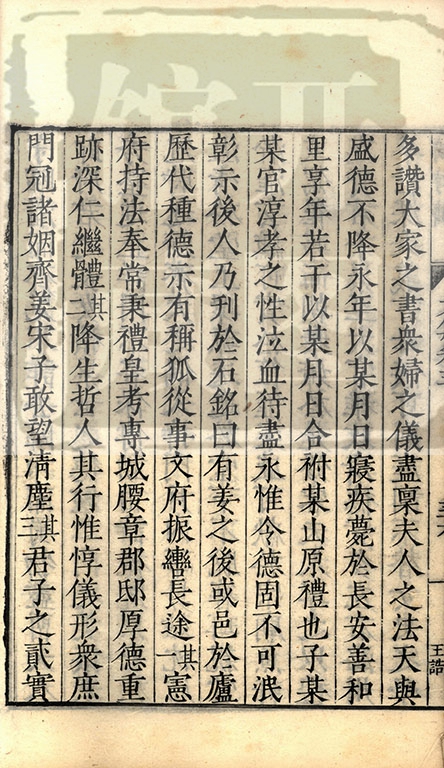 多讚大家之書衆婦之儀盡稟夫人之法天與
盛德不降永年以某月日寢疾薨於長安善和
里享年若干以某月日合祔某山原禮也子某
某官淳孝之性泣血待盡永惟令德固不可泯
彰示後人乃刋於石銘曰有姜之後或邑於廬
歷代種德示有稱孤從事文府振轡長途其一憲
府持法奉常秉禮皇考專城腰章郡邸厚德重
跡深仁繼體其二降生哲人其行惟惇儀形衆庶
門冠諸姻齊姜宋子敢望淸塵其三君子之貳實
王誥